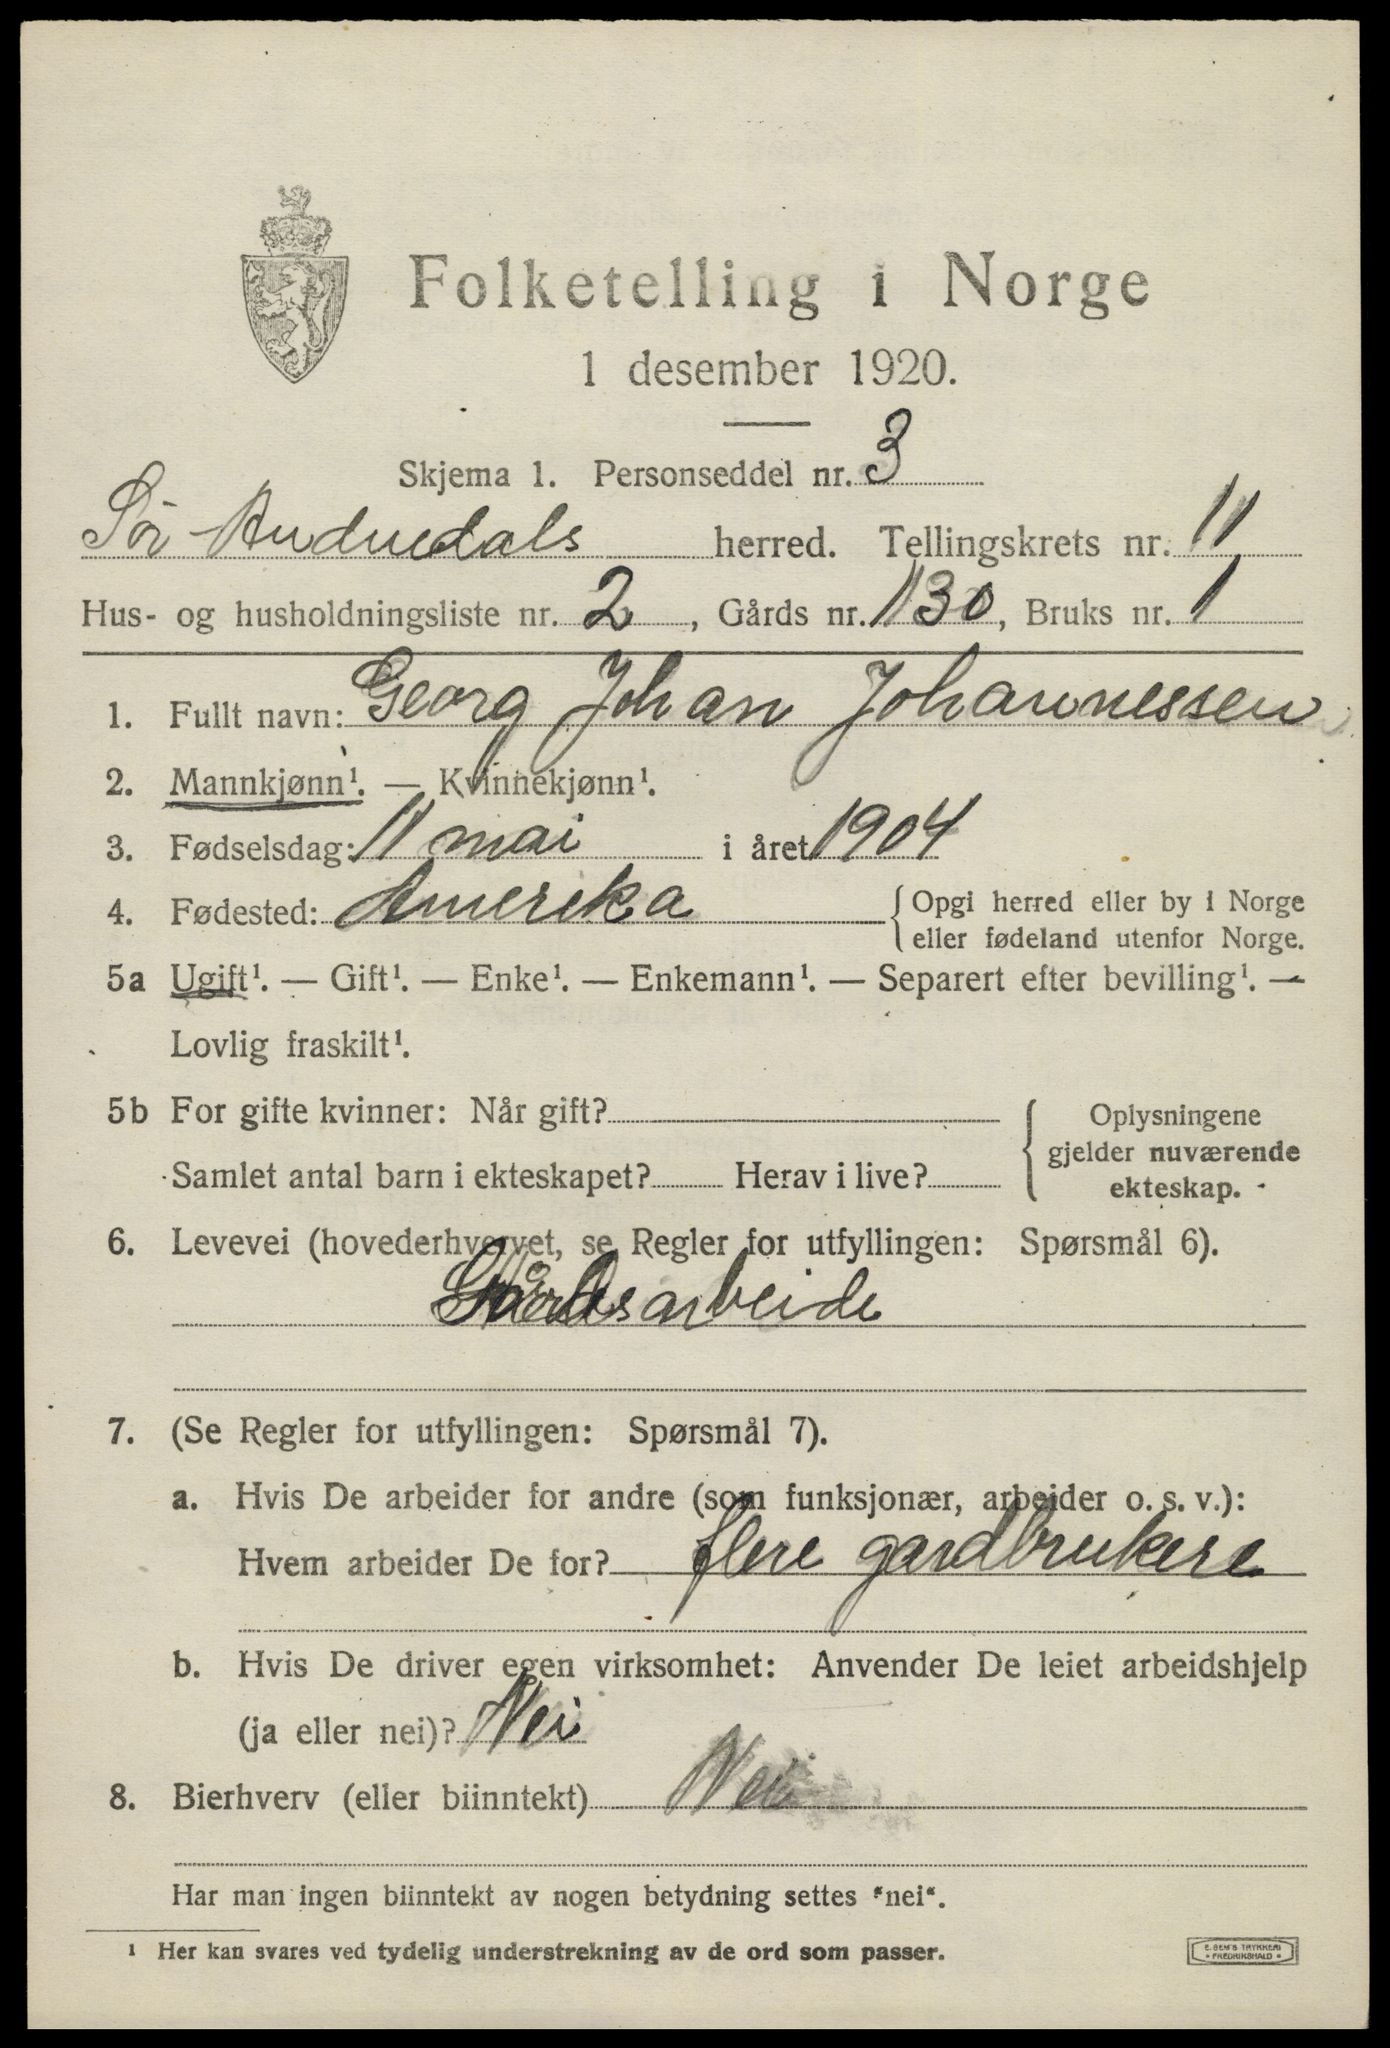 Folketelling i Norge
1 desember 1920.
Skjema 1. Personseddel nr. 3
Sör Audnedals herred. Tellingskrets nr. 11
Hus- og husholdningsliste nr. 2, Gårds nr. 130, Bruks nr. 1
1. Fullt navn: Georg Johan Johannessen
2. Mannkjønn¹. — Kvinnekjønn¹.
3. Fødselsdag: 11 mai i året 1904
4. Fødested: Amerika { Opgi herred eller by i Norge
eller fødeland utenfor Norge.
5a Ugift¹. — Gift¹. — Enke¹. — Enkemann¹. — Separert efter bevilling¹. —
Lovlig fraskilt¹.
5b For gifte kvinner: Når gift? { Oplysningene
gjelder nuværende
Samlet antal barn i ekteskapet? Herav i live? ekteskap.
6. Levevei (hovederhvervet, se Regler for utfyllingen: Spørsmål 6).
Gårdsarbeide
7. (Se Regler for utfyllingen: Spørsmål 7).
a. Hvis De arbeider for andre (som funksjonær, arbeider o. s. v.):
Hvem arbeider De for? flere gardbrukere
b. Hvis De driver egen virksomhet: Anvender De leiet arbeidshjelp
(ja eller nei)? Nei
8. Bierhverv (eller biinntekt) Nei
Har man ingen biinntekt av nogen betydning settes "nei".
¹ Her kan svares ved tydelig understrekning av de ord som passer.
E. SEM'S TRYKKERI
• FREDRIKSHALD •